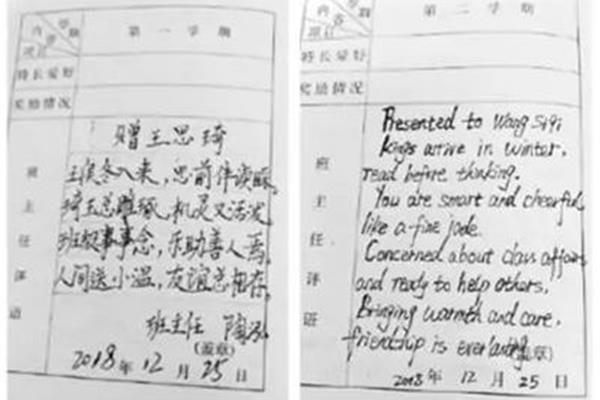 学期
内容
项目
第一学期
特长爱好
奖励情况
班主任评语
赠王思琦
王侯冬入来，思前伴读
琦玉总雕琢，机灵又活泼
班级事事念，乐助善人焉
人间送小温，友谊总相存。
班主任 陶
(盖章)
2018年12月25日
学期
内容
项目
第二学期
特长爱好
奖励情况
班主任评语
Presented to Wang Siqi
Kings arrive in winter.
read before thinking.
You are smart and cheerful
like a fine jade.
Concerned about class affairs
and ready to help others.
Bringing warmth and care.
friendship is everlasting
(盖章)
2018年12月25日